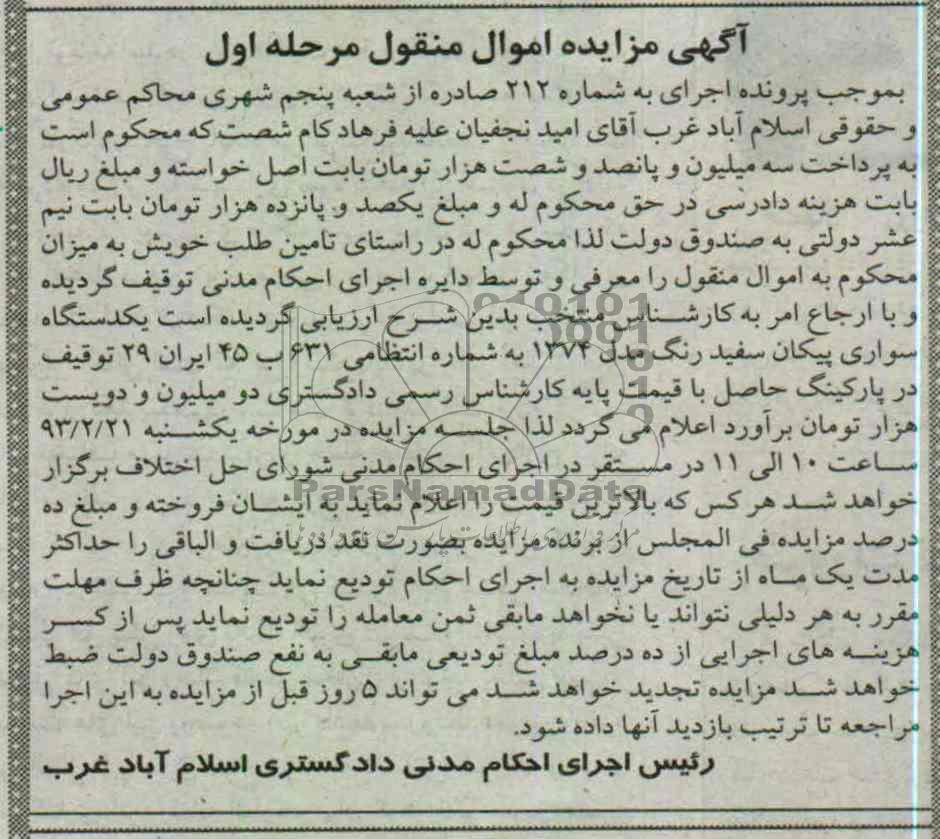 آگهی مزایده اموال منقول مرحله اول
بموجب پرونده اجرای به شماره ۲۱۲ صادره از شعبه پنجم شهری محاکم عمومی
و حقوقی اسلام آباد غرب آقای امید نجفیان علیه فرهاد کام شصت که محکوم است
به پرداخت سه میلیون و پانصد و شصت هزار تومان بابت اصل خواسته و مبلغ ریال
بابت هزینه دادرسی در حق محکوم له و مبلغ یکصد و پانزده هزار تومان بابت نیم
عشر دولتی به صندوق دولت لذا محکوم له در راستای تامین طلب خویش به میزان
محکوم به اموال منقول را معرفی و توسط دایره اجرای احکام مدنی توقیف گردیده
و با ارجاع امر به کارشناس منتخب بدین شرح ارزیابی گردیده است یکدستگاه
سواری پیکان سفید رنگ مدل ۱۳۷۴ به شماره انتظامی ۶۳۱ ب ۴۵ ایران ۲۹ توقیف
در پارکینگ حاصل با قیمت پایه کارشناس رسمی دادگستری دو میلیون و دویست
هزار تومان برآورد اعلام می گردد لذا جلسه مزایده در مورخه یکشنبه ۹۳/۲/۲۱
ساعت ۱۰ الی ۱۱ در مستقر در اجرای احکام مدنی شورای حل اختلاف برگزار
خواهد شد هر کس که بالاترین قیمت را اعلام نماید به ایشان فروخته و مبلغ ده
درصد مزایده فی المجلس از برنده مزایده بصورت نقد دریافت و الباقی را حداکثر
مدت یک ماه از تاریخ مزایده به اجرای احکام تودیع نماید چنانچه ظرف مهلت
مقرر به هر دلیلی نتواند یا نخواهد مابقی ثمن معامله را تودیع نماید پس از کسر
هزینه های اجرایی از ده درصد مبلغ تودیعی مابقی به نفع صندوق دولت ضبط
خواهد شد مزایده تجدید خواهد شد می تواند ۵ روز قبل از مزایده به این اجرا
مراجعه تا ترتیب بازدید آنها داده شود.
رئیس اجرای احکام مدنی دادگستری اسلام آباد غرب
ParsNamadData